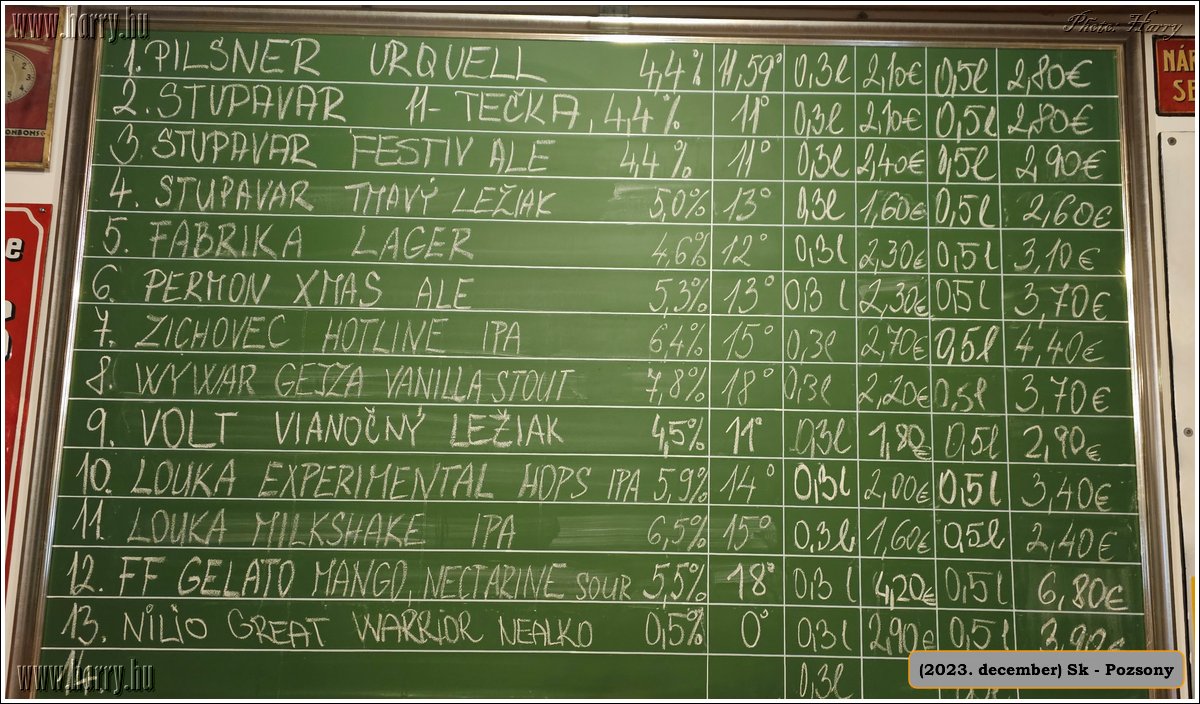 www.harry.hu
Photo: Harry
1. PILSNER URQUELL 4,4% 11,59° 0,3l 2,10€ 0,5l 2,80€
2. STUPAVAR 11- TEČKA, 4,4% 11° 0,3l 2,10€ 0,5l 2,80€
3. STUPAVAR FESTIV ALE 4,4% 11° 0,3l 2,40€ 0,5l 2,90€
4. STUPAVAR TMAVÝ LEŽIAK 5,0% 13° 0,3l 1,60€ 0,5l 2,60€
5. FABRIKA LAGER 4,6% 12° 0,3l 2,30€ 0,5l 3,10€
6. PERMON XMAS ALE 5,3% 13° 0,3 l 2,30€ 0,5l 3,70€
7. ZICHOVEC HOTLINE IPA 6,4% 15° 0,3l 2,70€ 0,5l 4,40€
8. WYWAR GEJZA VANILLA STOUT 7,8% 18° 0,3l 2,20€ 0,5l 3,70€
9. VOLT VIANOČNÝ LEŽIAK 4,5% 11° 0,3l 1,80€ 0,5l 2,90€
10. LOUKA EXPERIMENTAL HOPS IPA 5,9% 14° 0,3l 2,00€ 0,5l 3,40€
11 LOUKA MILKSHAKE IPA 6,5% 15° 0,3l 1,60€ 0,5l 2,40€
12. FF GELATO MANGO, NECTARINE SOUR 5,5% 18° 0,3 l 4,20€ 0,5l 6,80€
13. NILIO GREAT WARRIOR NEALKO 0,5% 0° 0,3l 2,90€ 0,5l
14 0,3l
www.harry.hu
(2023. december) Sk - Pozsony